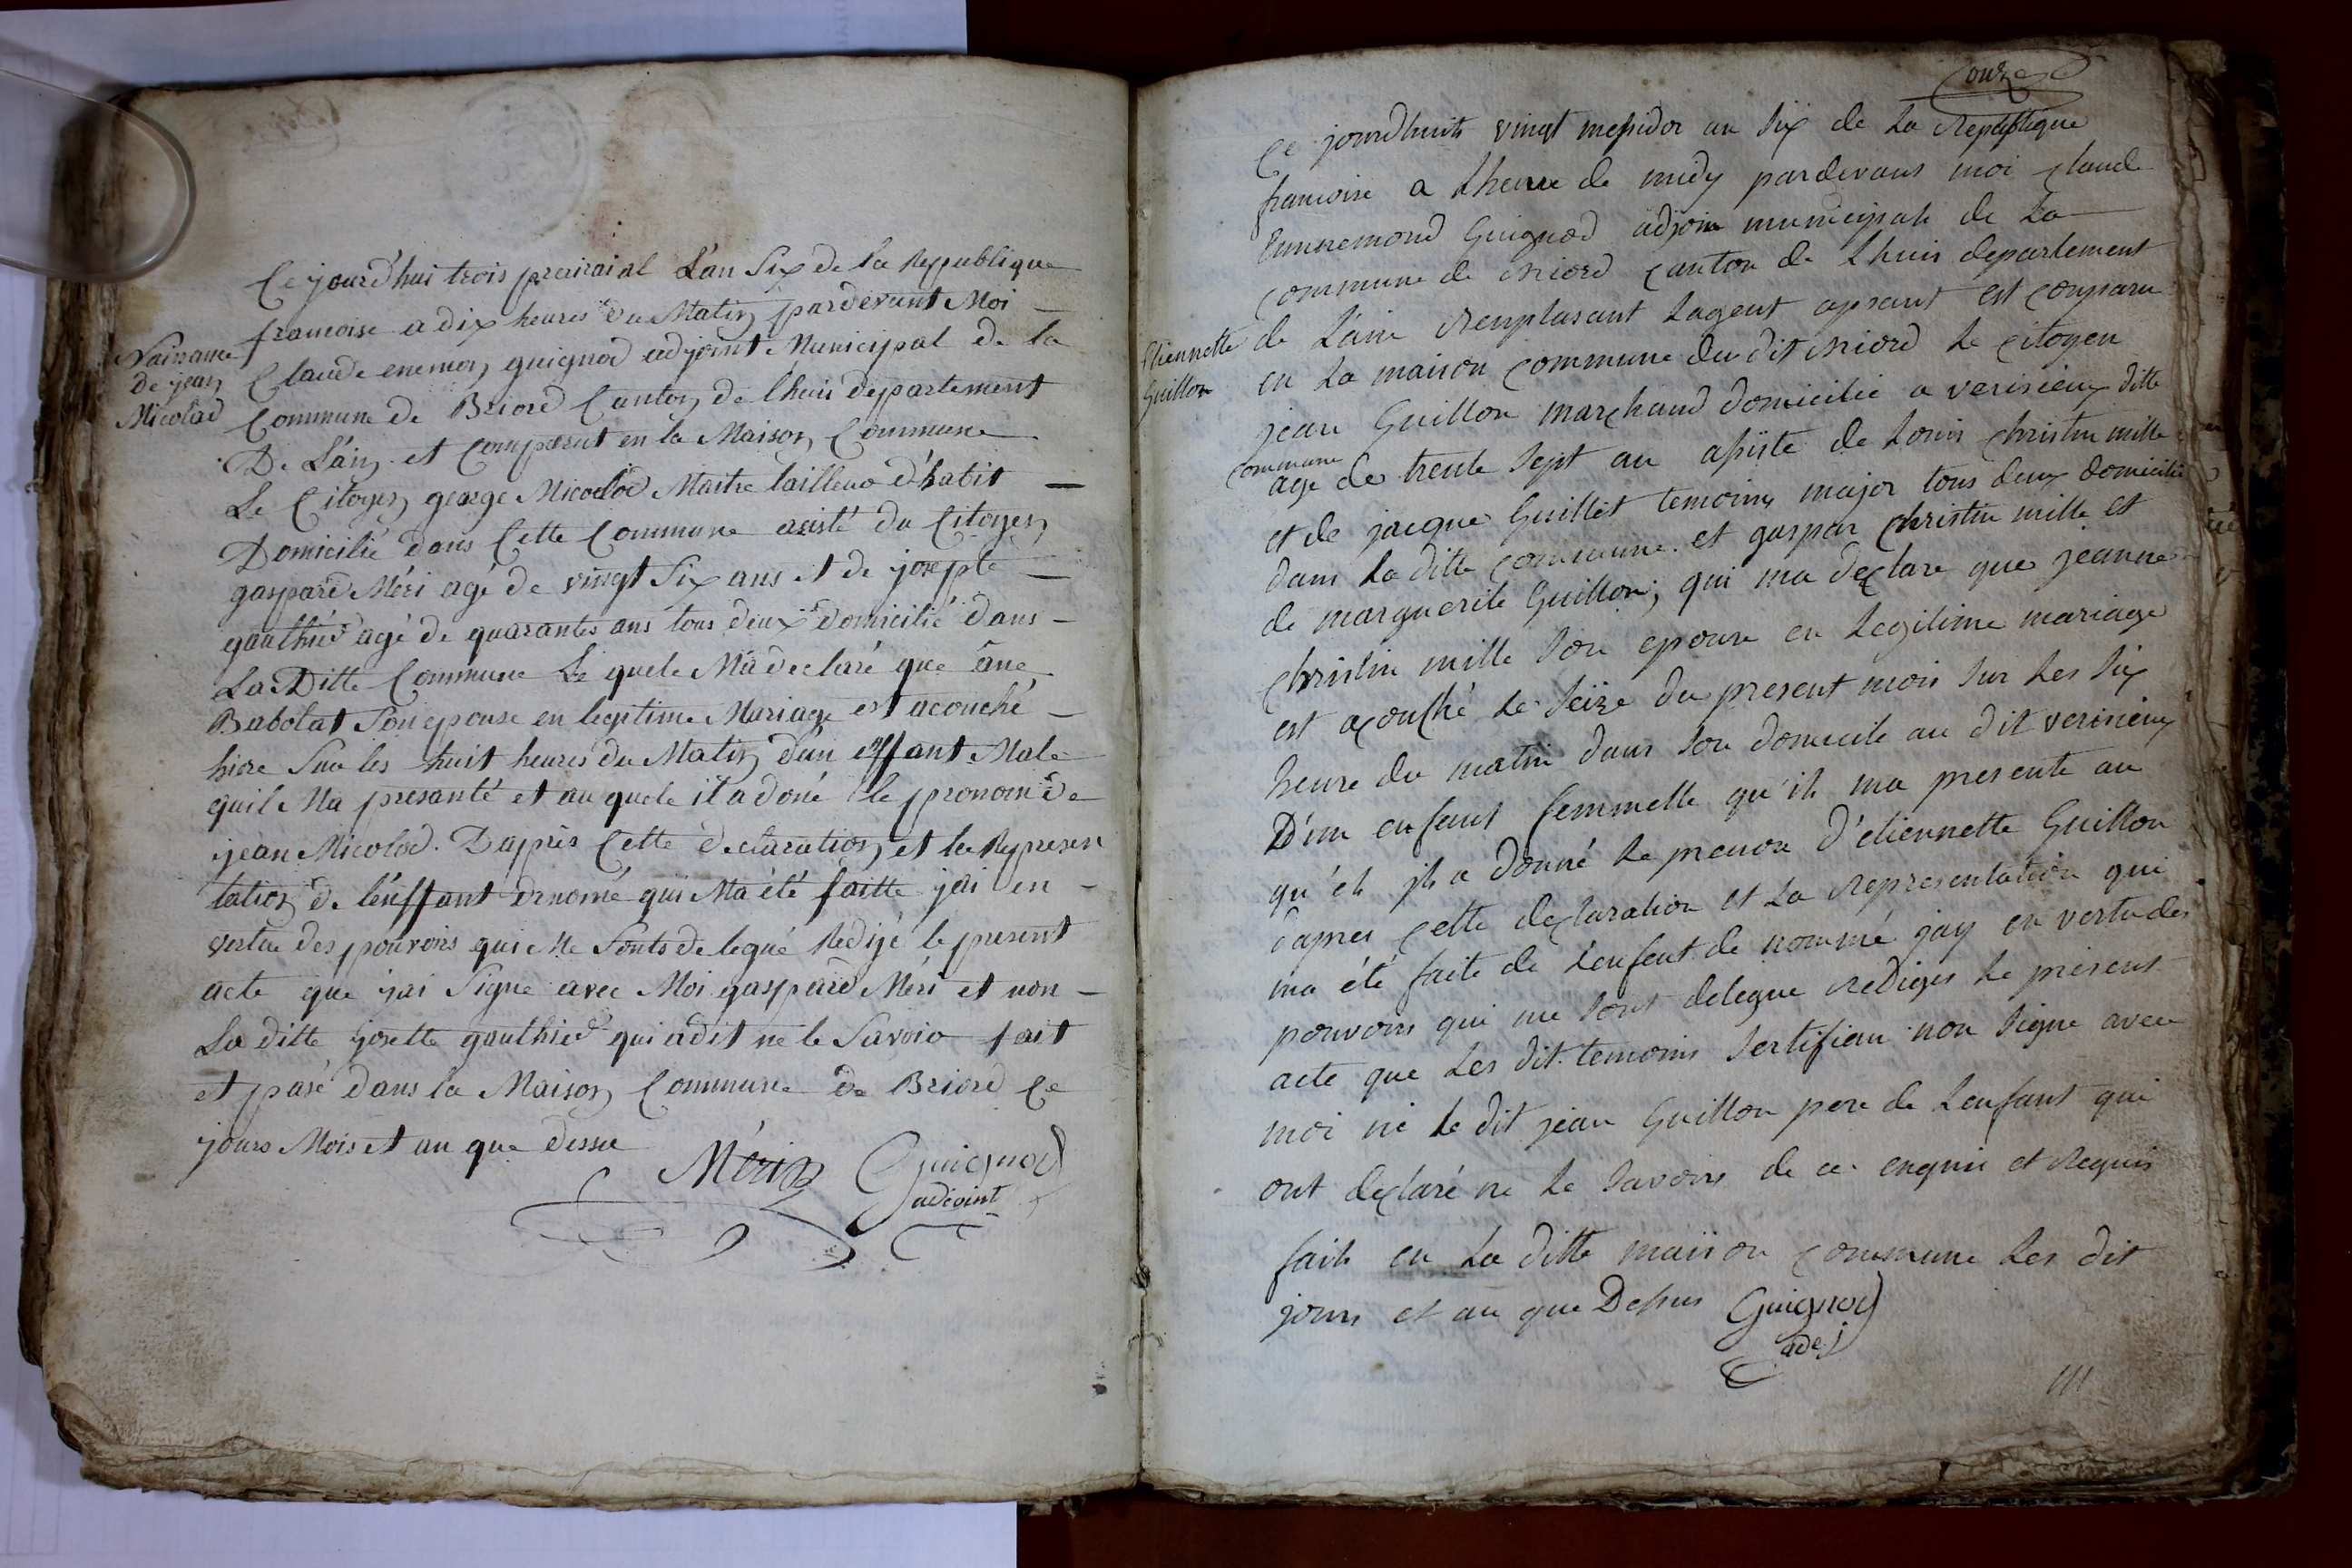 Ce jourd'hui trois prairaial L'an Six de la Republique
francoise a dix heures du Matin pardevant Moi
Naissance
de jean
Nicolad
Claude enemon guignod adjoint Municipal de la
Commune de Briord Canton de lhuis departement
De L'ain et Comparut en la Maison Commune
Le Citoyen george Nicolod Maitre tailleur d'habit
Domicilié dans Cette Commune asisté du Citoyen
gaspard Méri agé de vingt Six ans et de joseple
gauthied agé de quarantes ans tous deux Domicilié dans
La Ditte Commune Le quele Ma declaré que ane
Babolat Son epouse en legitime Mariage est acouché
hiere Sur les huit heures du Matin d'un effant Male
quil Ma presanté et au quele il a doné le pronom de
jean Nicolod. D'apprès Cette declaration et la Represen
tation de l'effant denomé qui Ma été faitte jai en
vertue des pouvoirs qui Me Sonts delegué Redijé le present
acte que jai Signe avec Moi gaspard Méri et non
La ditte josette gauthied qui a dit ne le Savoir fait
et pasé dans la Maison Commune de Briord Ce
jours Mois et an que dessu
Mérin Guignod
adjoint
onze
Ce jourdhuit vingt messidor an Six de La Republique
francoise a Lheure de midy pardevans moi Claude
Ennnemond Guignod adjoin municipale de La
commune de Briord Canton de Lhuis departement
Etiennette
Guillon
de Lain Remplasant Lagent apsant est Comparu
en La maison Commune du dit Briord Le Citoyen
jean Guillon marchand domicilié a verisieux ditte
commune
agé de trente Sept an asiste de Louis christin mille
et de jacque Guillet temoins major tous deux domicilié
dans La ditte Commune et gaspar christin mille et
de marguerite Guillon, qui ma declare que jeanne
christin mille Son epouse en Legitime mariage
est acouché Le Seize du present mois Sur Les Six
heure du matin dans Son domicile au dit verisieux
D'un enfant femmelle qu'il ma presente au
qu'el il a donné Le prenon d'etiennette Guillon
dapres Cette declaration et La Representation qui
ma été faite de Lenfent de nommé jay en vertu des
pouvoirs qui me Sont delegue Rediges Le present
acte que Les dit temoins Sertifiau non Signe avec
moi ni Le dit jean Guillon pere de Lenfant qui
ont declaré ne Le Savoirs de ce enquis et Requis
fait en La ditte maison Commune Les dit
jours et an que Dessus Guignod
adej